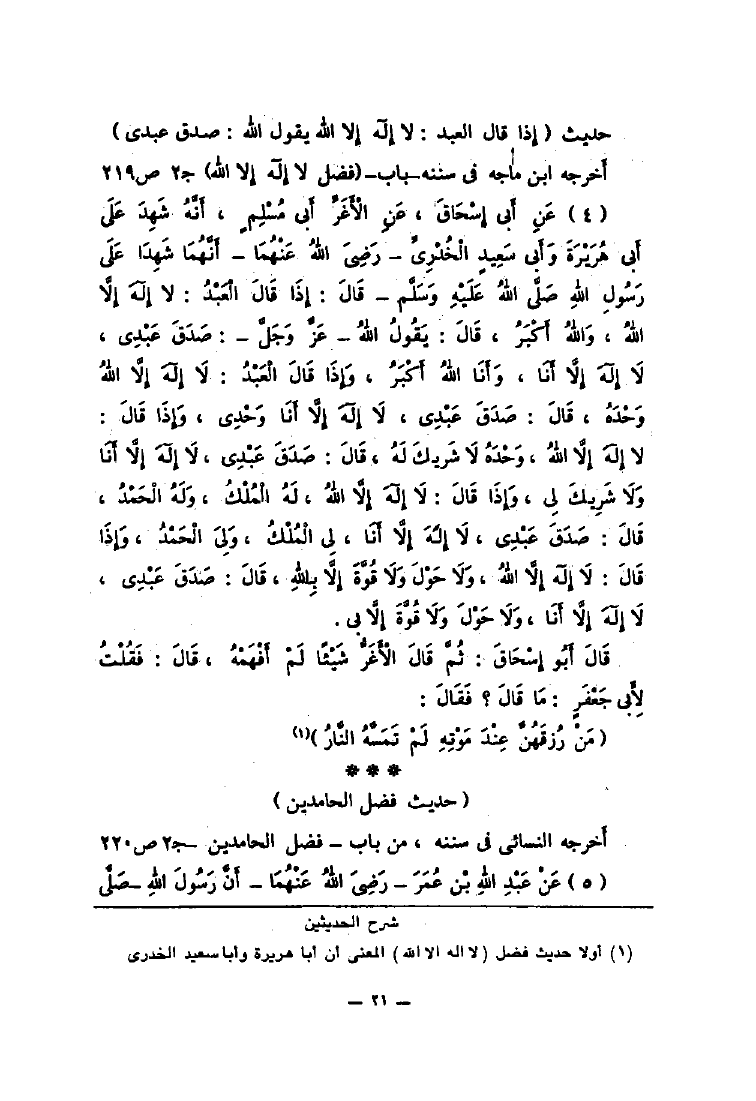 حديث ( إذا قال العبد : لا إلٰه إلا الله يقول الله : صدق عبدى )
أخرجه ابن ماجه فى سننه–باب–(فضل لا إلٰه إلا الله) جـ٢ ص٢١٩
( ٤ ) عَنِ أَبِى إِسْحَاقَ ، عَنِ الْأَغَرِّ أَبِى مُسْلِمٍ ، أَنَّهُ شَهِدَ عَلَى
أَبِى هُرَيْرَةَ وَأَبِى سَعِيدٍ الْخُدْرِىِّ – رَضِىَ اللهُ عَنْهُمَا – أَنَّهُمَا شَهِدَا عَلَى
رَسُولِ اللهِ صَلَّى اللهُ عَلَيْهِ وَسَلَّمَ – قَالَ : إِذَا قَالَ الْعَبْدُ : لَا إِلٰهَ إِلَّا
اللهُ ، وَاللهُ أَكْبَرُ ، قَالَ : يَقُولُ اللهُ – عَزَّ وَجَلَّ – : صَدَقَ عَبْدِى ،
لَا إِلٰهَ إِلَّا أَنَا ، وَأَنَا اللهُ أَكْبَرُ ، وَإِذَا قَالَ الْعَبْدُ : لَا إِلٰهَ إِلَّا اللهُ
وَحْدَهُ ، قَالَ : صَدَقَ عَبْدِى ، لَا إِلٰهَ إِلَّا أَنَا وَحْدِى ، وَإِذَا قَالَ :
لَا إِلٰهَ إِلَّا اللهُ ، وَحْدَهُ لَا شَرِيكَ لَهُ ، قَالَ : صَدَقَ عَبْدِى ، لَا إِلٰهَ إِلَّا أَنَا
وَلَا شَرِيكَ لِى ، وَإِذَا قَالَ : لَا إِلٰهَ إِلَّا اللهُ ، لَهُ الْمُلْكُ ، وَلَهُ الْحَمْدُ ،
قَالَ : صَدَقَ عَبْدِى ، لَا إِلٰهَ إِلَّا أَنَا ، لِى الْمُلْكُ ، وَلِىَ الْحَمْدُ ، وَإِذَا
قَالَ : لَا إِلٰهَ إِلَّا اللهُ ، وَلَا حَوْلَ وَلَا قُوَّةَ إِلَّا بِاللهِ ، قَالَ : صَدَقَ عَبْدِى ،
لَا إِلٰهَ إِلَّا أَنَا ، وَلَا حَوْلَ وَلَا قُوَّةَ إِلَّا بِى .
قَالَ أَبُو إِسْحَاقَ : ثُمَّ قَالَ الْأَغَرُّ شَيْئًا لَمْ أَفْهَمْهُ ، قَالَ : فَقُلْتُ
لِأَبِى جَعْفَرٍ : مَا قَالَ ؟ فَقَالَ :
( مَنْ رُزِقَهُنَّ عِنْدَ مَوْتِهِ لَمْ تَمَسَّهُ النَّارُ )(١)
* * *
( حديث فضل الحامدين )
أخرجه النسائى فى سننه ، من باب – فضل الحامدين –جـ٢ ص٢٢٠
( ٥ ) عَنْ عَبْدِ اللهِ بْنِ عُمَرَ – رَضِىَ اللهُ عَنْهُمَا – أَنَّ رَسُولَ اللهِ –صَلَّى
شرح الحديثين
(١) أولا حديث فضل ( لا اله الا الله ) المعنى أن أبا هريرة وأبا سعيد الخدرى
– ٢١ –